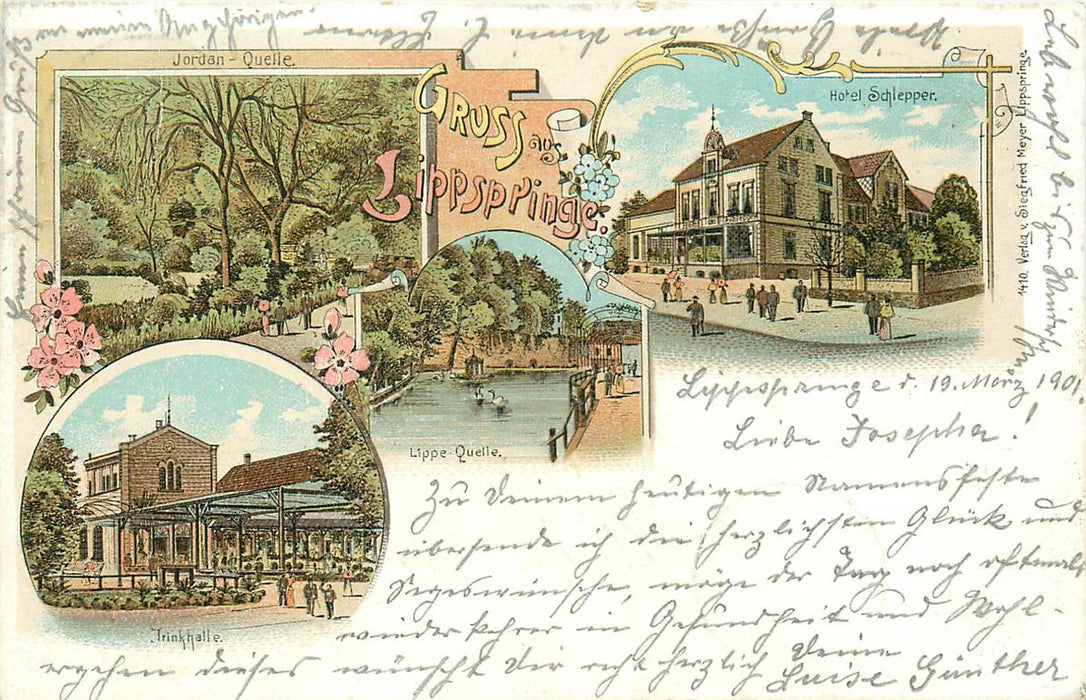 Jordan - Quelle.
Gruss aus
Lippspringe.
Hotel Schlepper.
1410. Verlag v. Siegfried Meyer Lippspringe.
Lippe-Quelle.
Trinkhalle.
Lippspringe d. 19. März 1901
Liebe Josepha!
Zu Deinem heutigen Namensfeste
übersende ich die herzlichsten Glück und
Segeswünsche, möge der Tag noch oftmals
wiederkehren in Gesundheit und Wohl-
ergehen dieses wünscht Dir recht herzlich Deine
Luise Günther
Viele Grüße an
meine Angehörigen.